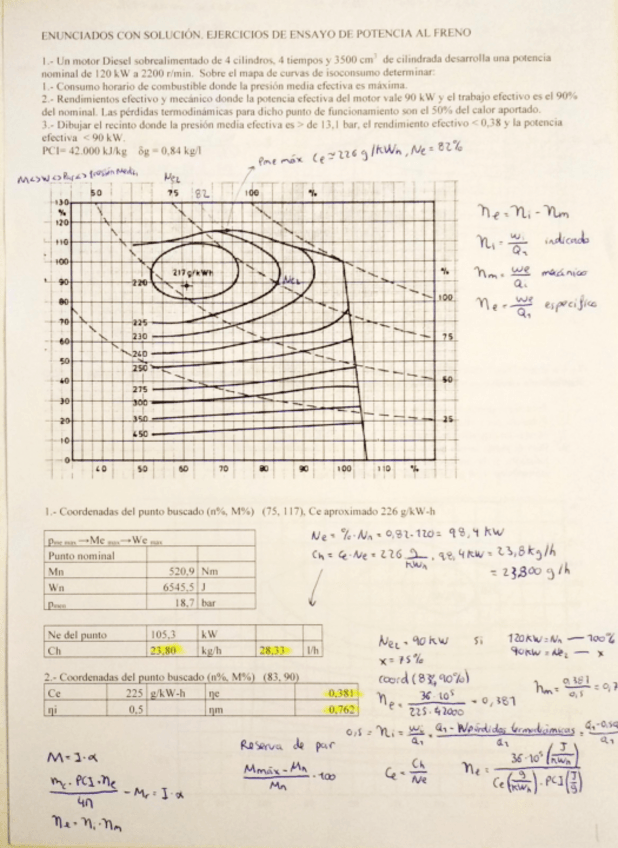 ENUNCIADOS CON SOLUCIÓN. EJERCICIOS DE ENSAYO DE POTENCIA AL FRENO
1.- Un motor Diesel sobrealimentado de 4 cilindros, 4 tiempos y 3500 cm³ de cilindrada desarrolla una potencia
nominal de 120 kW a 2200 r/min. Sobre el mapa de curvas de isoconsumo determinar:
1.- Consumo horario de combustible donde la presión media efectiva es máxima.
2.- Rendimientos efectivo y mecánico donde la potencia efectiva del motor vale 90 kW y el trabajo efectivo es el 90%
del nominal. Las pérdidas termodinámicas para dicho punto de funcionamiento son el 50% del calor aportado.
3.- Dibujar el recinto donde la presión media efectiva es > de 13,1 bar, el rendimiento efectivo < 0,38 y la potencia
efectiva < 90 kW.
PCI= 42.000 kJ/kg δg = 0,84 kg/l
Pme máx Ce = 226 g/kWh, Ne = 82%
Ne2
50 75 82 100 %
130
%
120
110
100
90
80
70
60
50
40
30
20
10
0
217 gr/kWh
220
Ne2
225
230
240
250
275
300
350
450
%
100
75
50
25
40 50 60 70 80 90 100 110 %
ηe = ηi - ηm
ηi = Wi/Q1 indicado
ηm = We/Qi mecánico
ηe = We/Q1 específico
1.- Coordenadas del punto buscado (n%, M%) (75, 117), Ce aproximado 226 g/kW-h
Pme max →Me max→We max
Punto nominal
Mn 520,9 Nm
Wn 6545,5 J
Pmen 18,7 bar
Ne = %·Nn = 0,82·120 = 98,4 kW
Ch = Ce·Ne = 226 g/kWh · 98,4 kW = 23,8 kg/h
= 23,800 g/h
Ne del punto 105,3 kW
Ch 23,80 kg/h 28,33 l/h
2.- Coordenadas del punto buscado (n%, M%) (83, 90)
Ce 225 g/kW-h ηe 0,381
ηi 0,5 ηm 0,762
Ne2 = 90 kW si 120 kW = Nn — 100%
x = 75% 90 kW = Ne2 — x
coord (83, 90%)
ηe = 36·10⁵/225·42000 = 0,381
ηm = 0,381/0,5 = 0,7
0,5 = ηi = Wi/Q1 = Q1 - W pérdidas termodinámicas/Q1
Reserva de par
Mmáx - Mn/Mn · 100
Ce = Ch/Ne
ηe = 36·10⁵ (J/kWh)/Ce (g/kWh) · PCI (J/g)
M = I·α
mc·PCI·ηe/4π - Mr = I·α
ηe = ηi·ηm